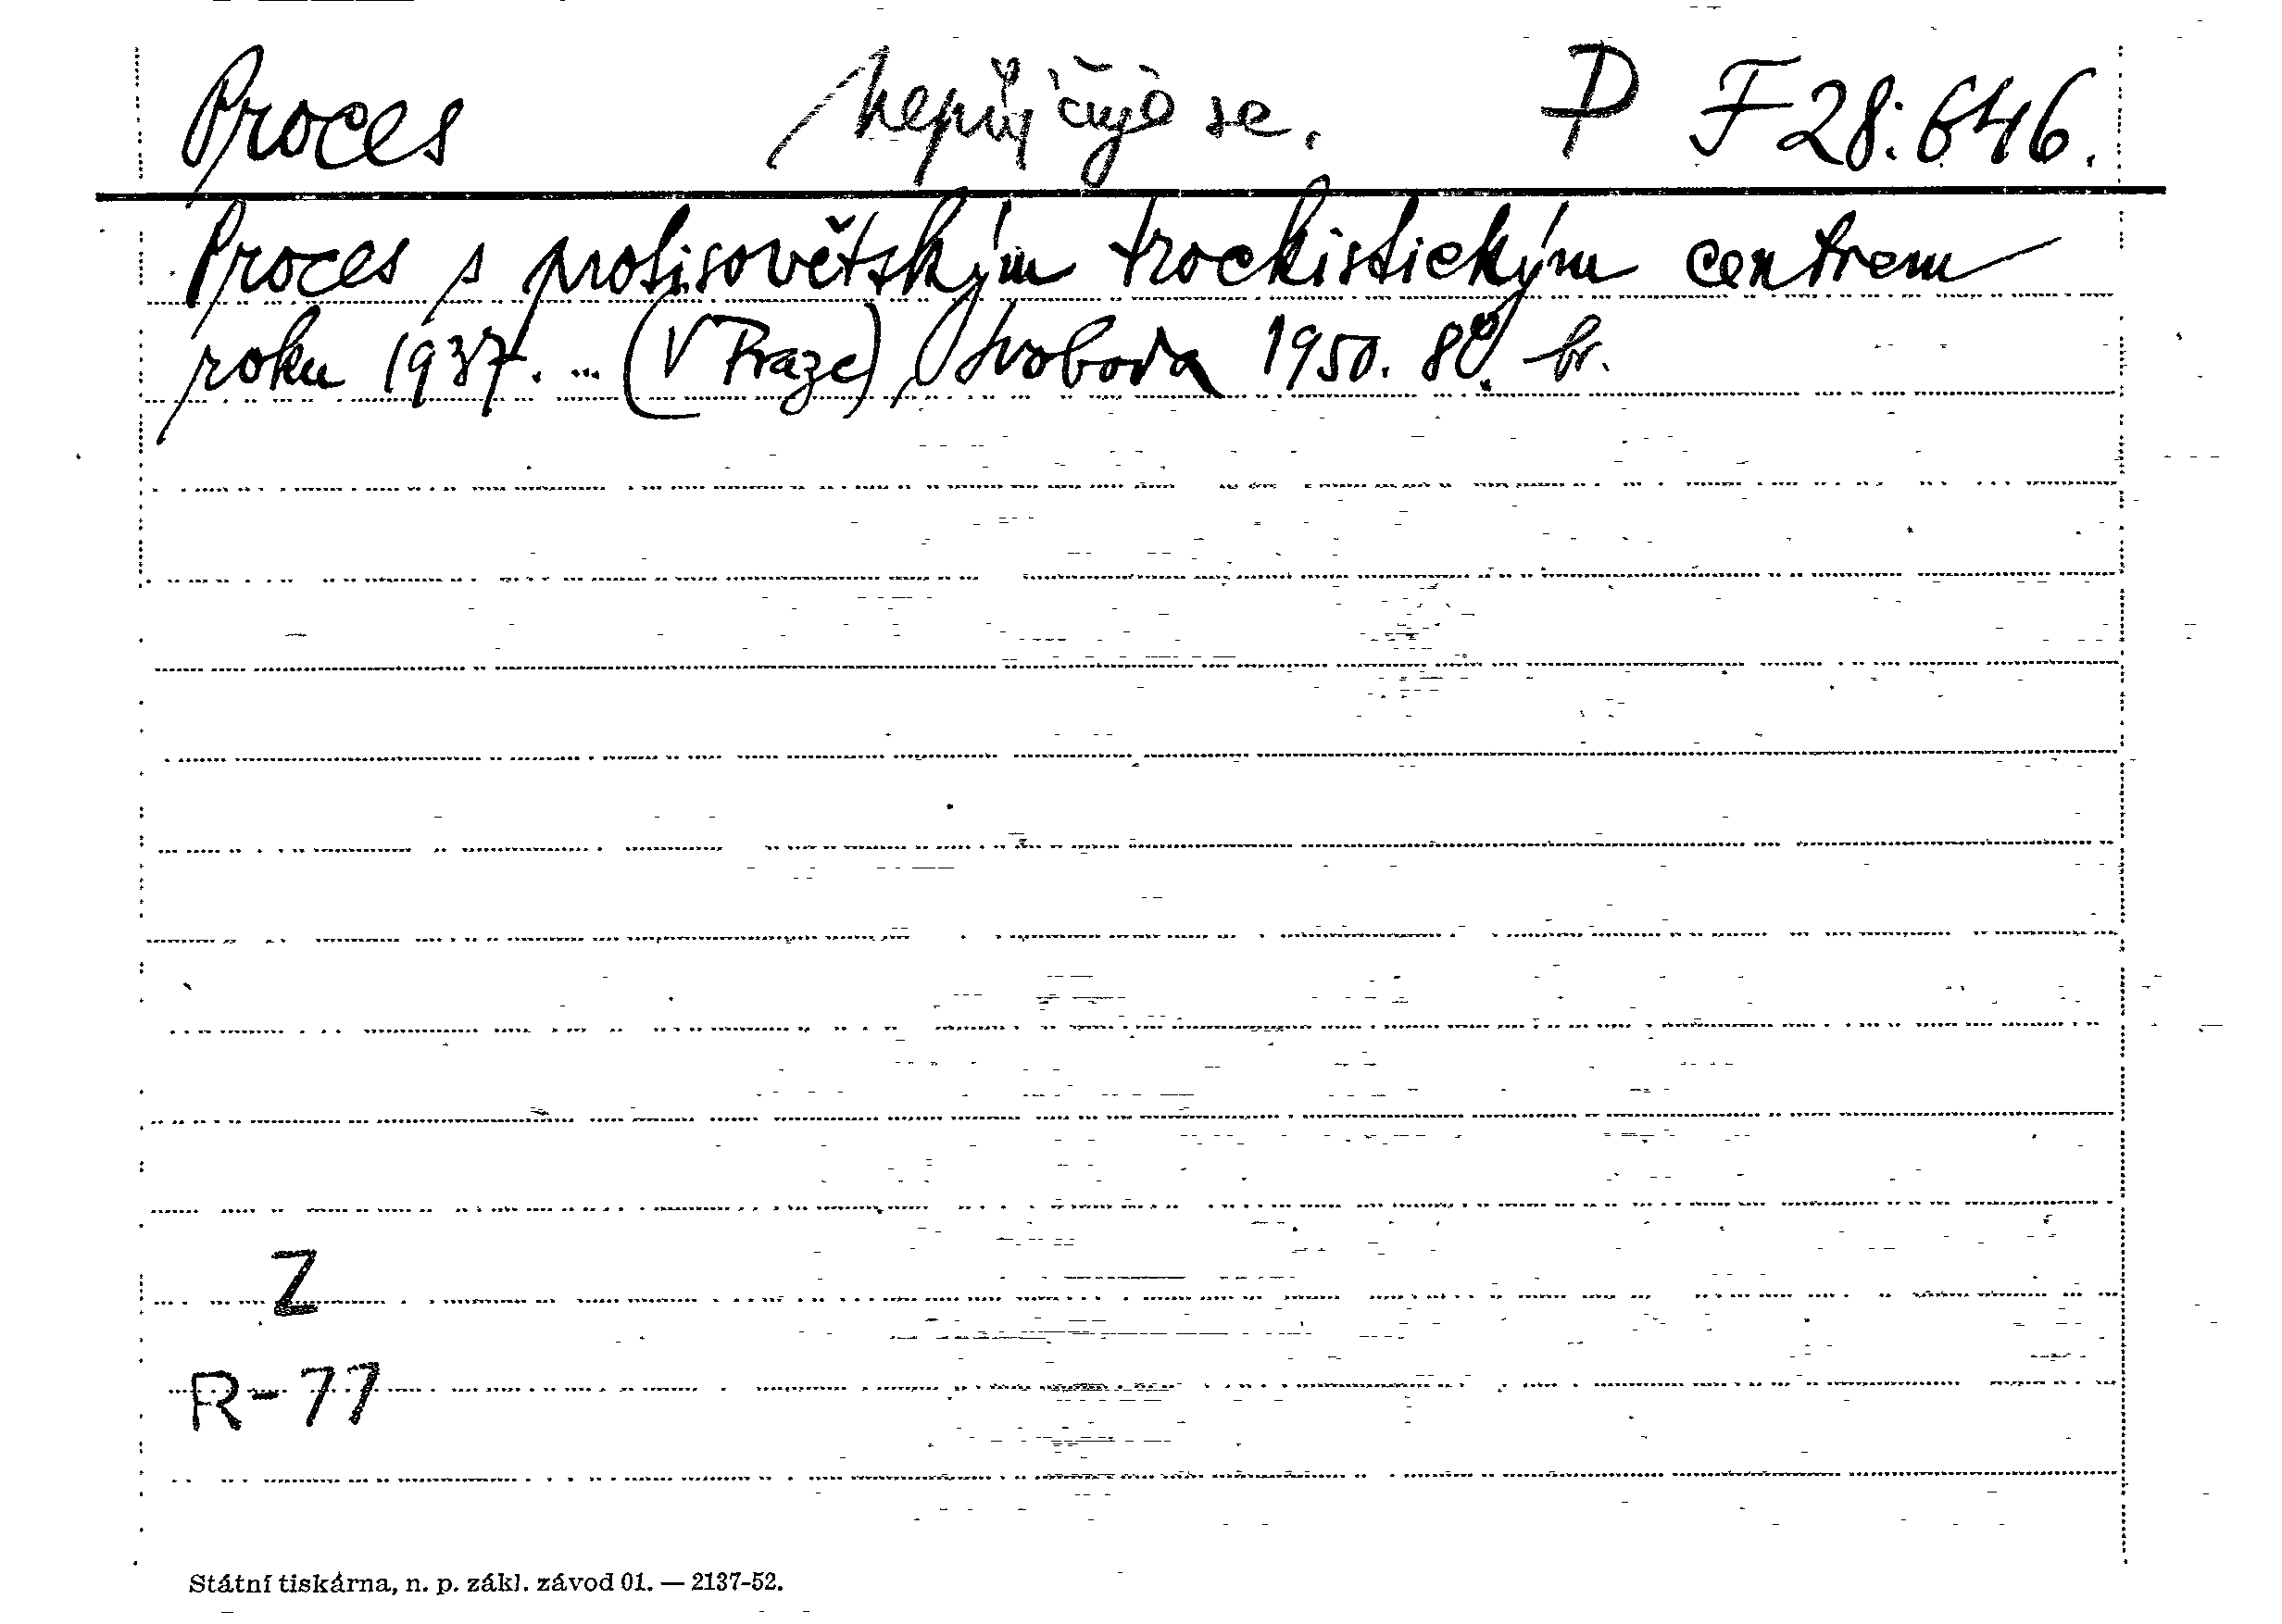 Proces Nepůjčuje se. P F 28.646.
Proces s protisovětským trockistickým centrem
roku 1937. ... (V Praze), Svoboda 1950. 8° br.
Z
R-77
Státní tiskárna, n. p. zákl. závod 01. — 2137-52.